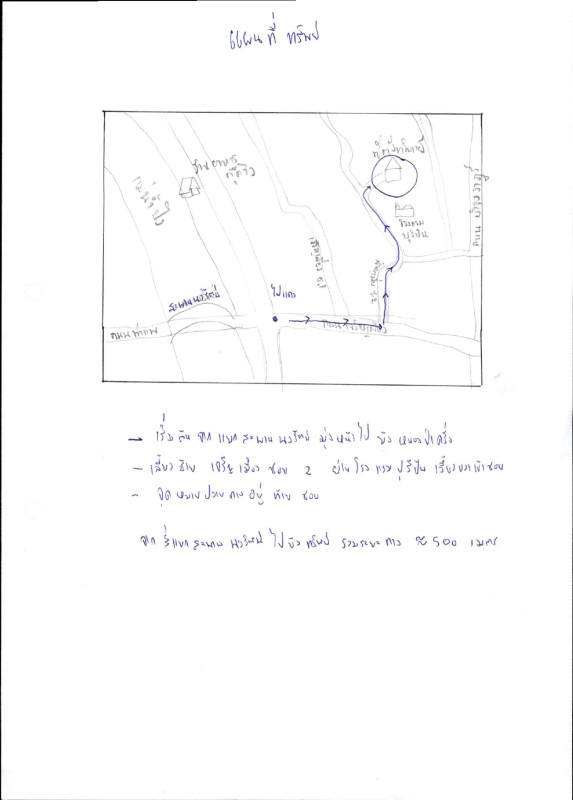 แผนที่ ทรัพย์
ที่ตั้งทรัพย์
ร้านอาหาร
แม่น้ำปิง
โรงแรม
ปุรีปัน
สะพานนวรัตน์
ไฟแดง
ถนนท่าแพ
ถนนเจริญเมือง
→ เริ่มต้น จาก แยก สะพาน นวรัตน์ มุ่งหน้าไป ยัง หนองป่าครั่ง
- เลี้ยวซ้าย เจริญเมือง ซอย 2 ผ่าน โรงแรม ปุรีปัน เลี้ยวขวาเข้าซอย
- จุดหมายปลายทาง อยู่ ท้าย ซอย
จาก สี่แยก สะพาน นวรัตน์ ไป ยัง ทรัพย์ รวมระยะทาง ≈ 500 เมตร